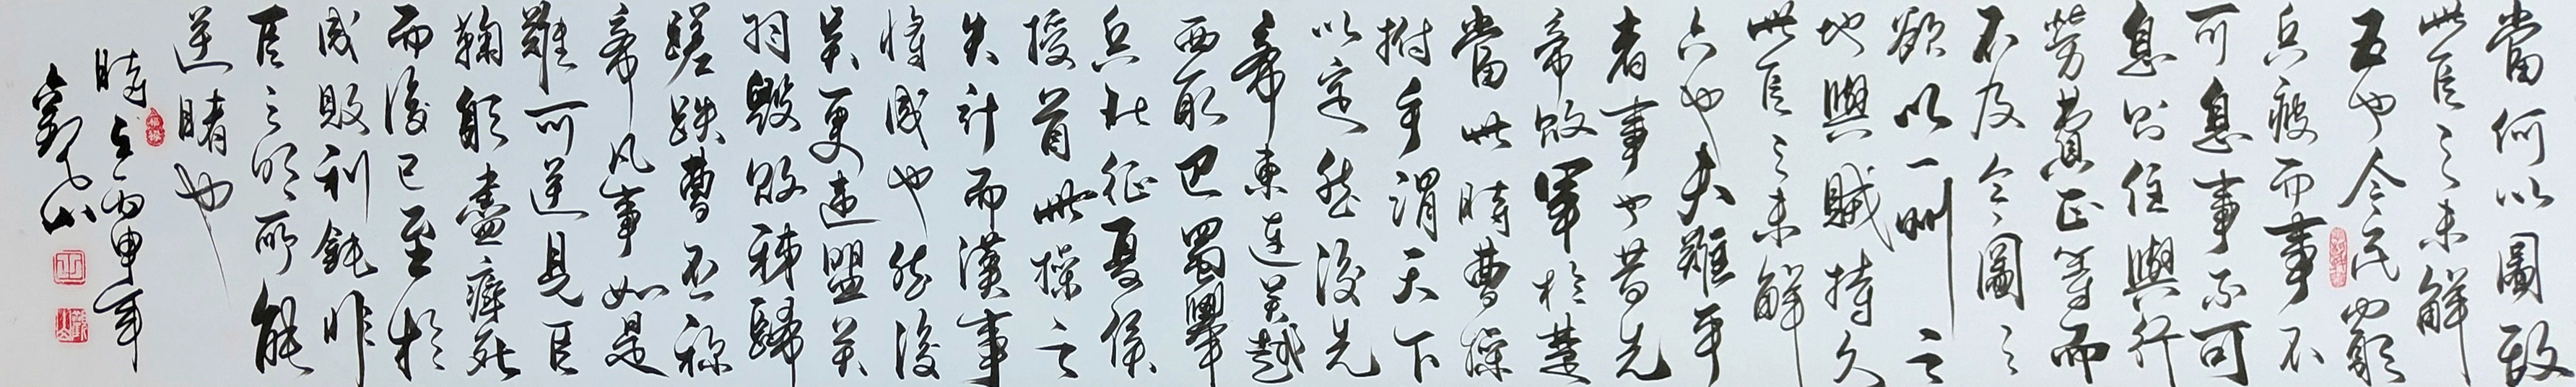 當何以圖敵
此臣之未解
五也今民窮
兵疲而事不
可息事不可
息則住與行
勞費正等而
不及今圖之
欲以一州之
地與賊持久
此臣之未解
六也夫難平
者事也昔先
帝敗軍於楚
當此時曹操
拊手謂天下
以定然後先
帝東連吳越
西取巴蜀舉
兵北征夏侯
授首此操之
失計而漢事
將成也然後
吳更違盟關
羽毀敗秭歸
蹉跌曹丕稱
帝凡事如是
難可逆見臣
鞠躬盡瘁死
而後已至於
成敗利鈍非
臣之明所能
逆睹也
時在丙申年